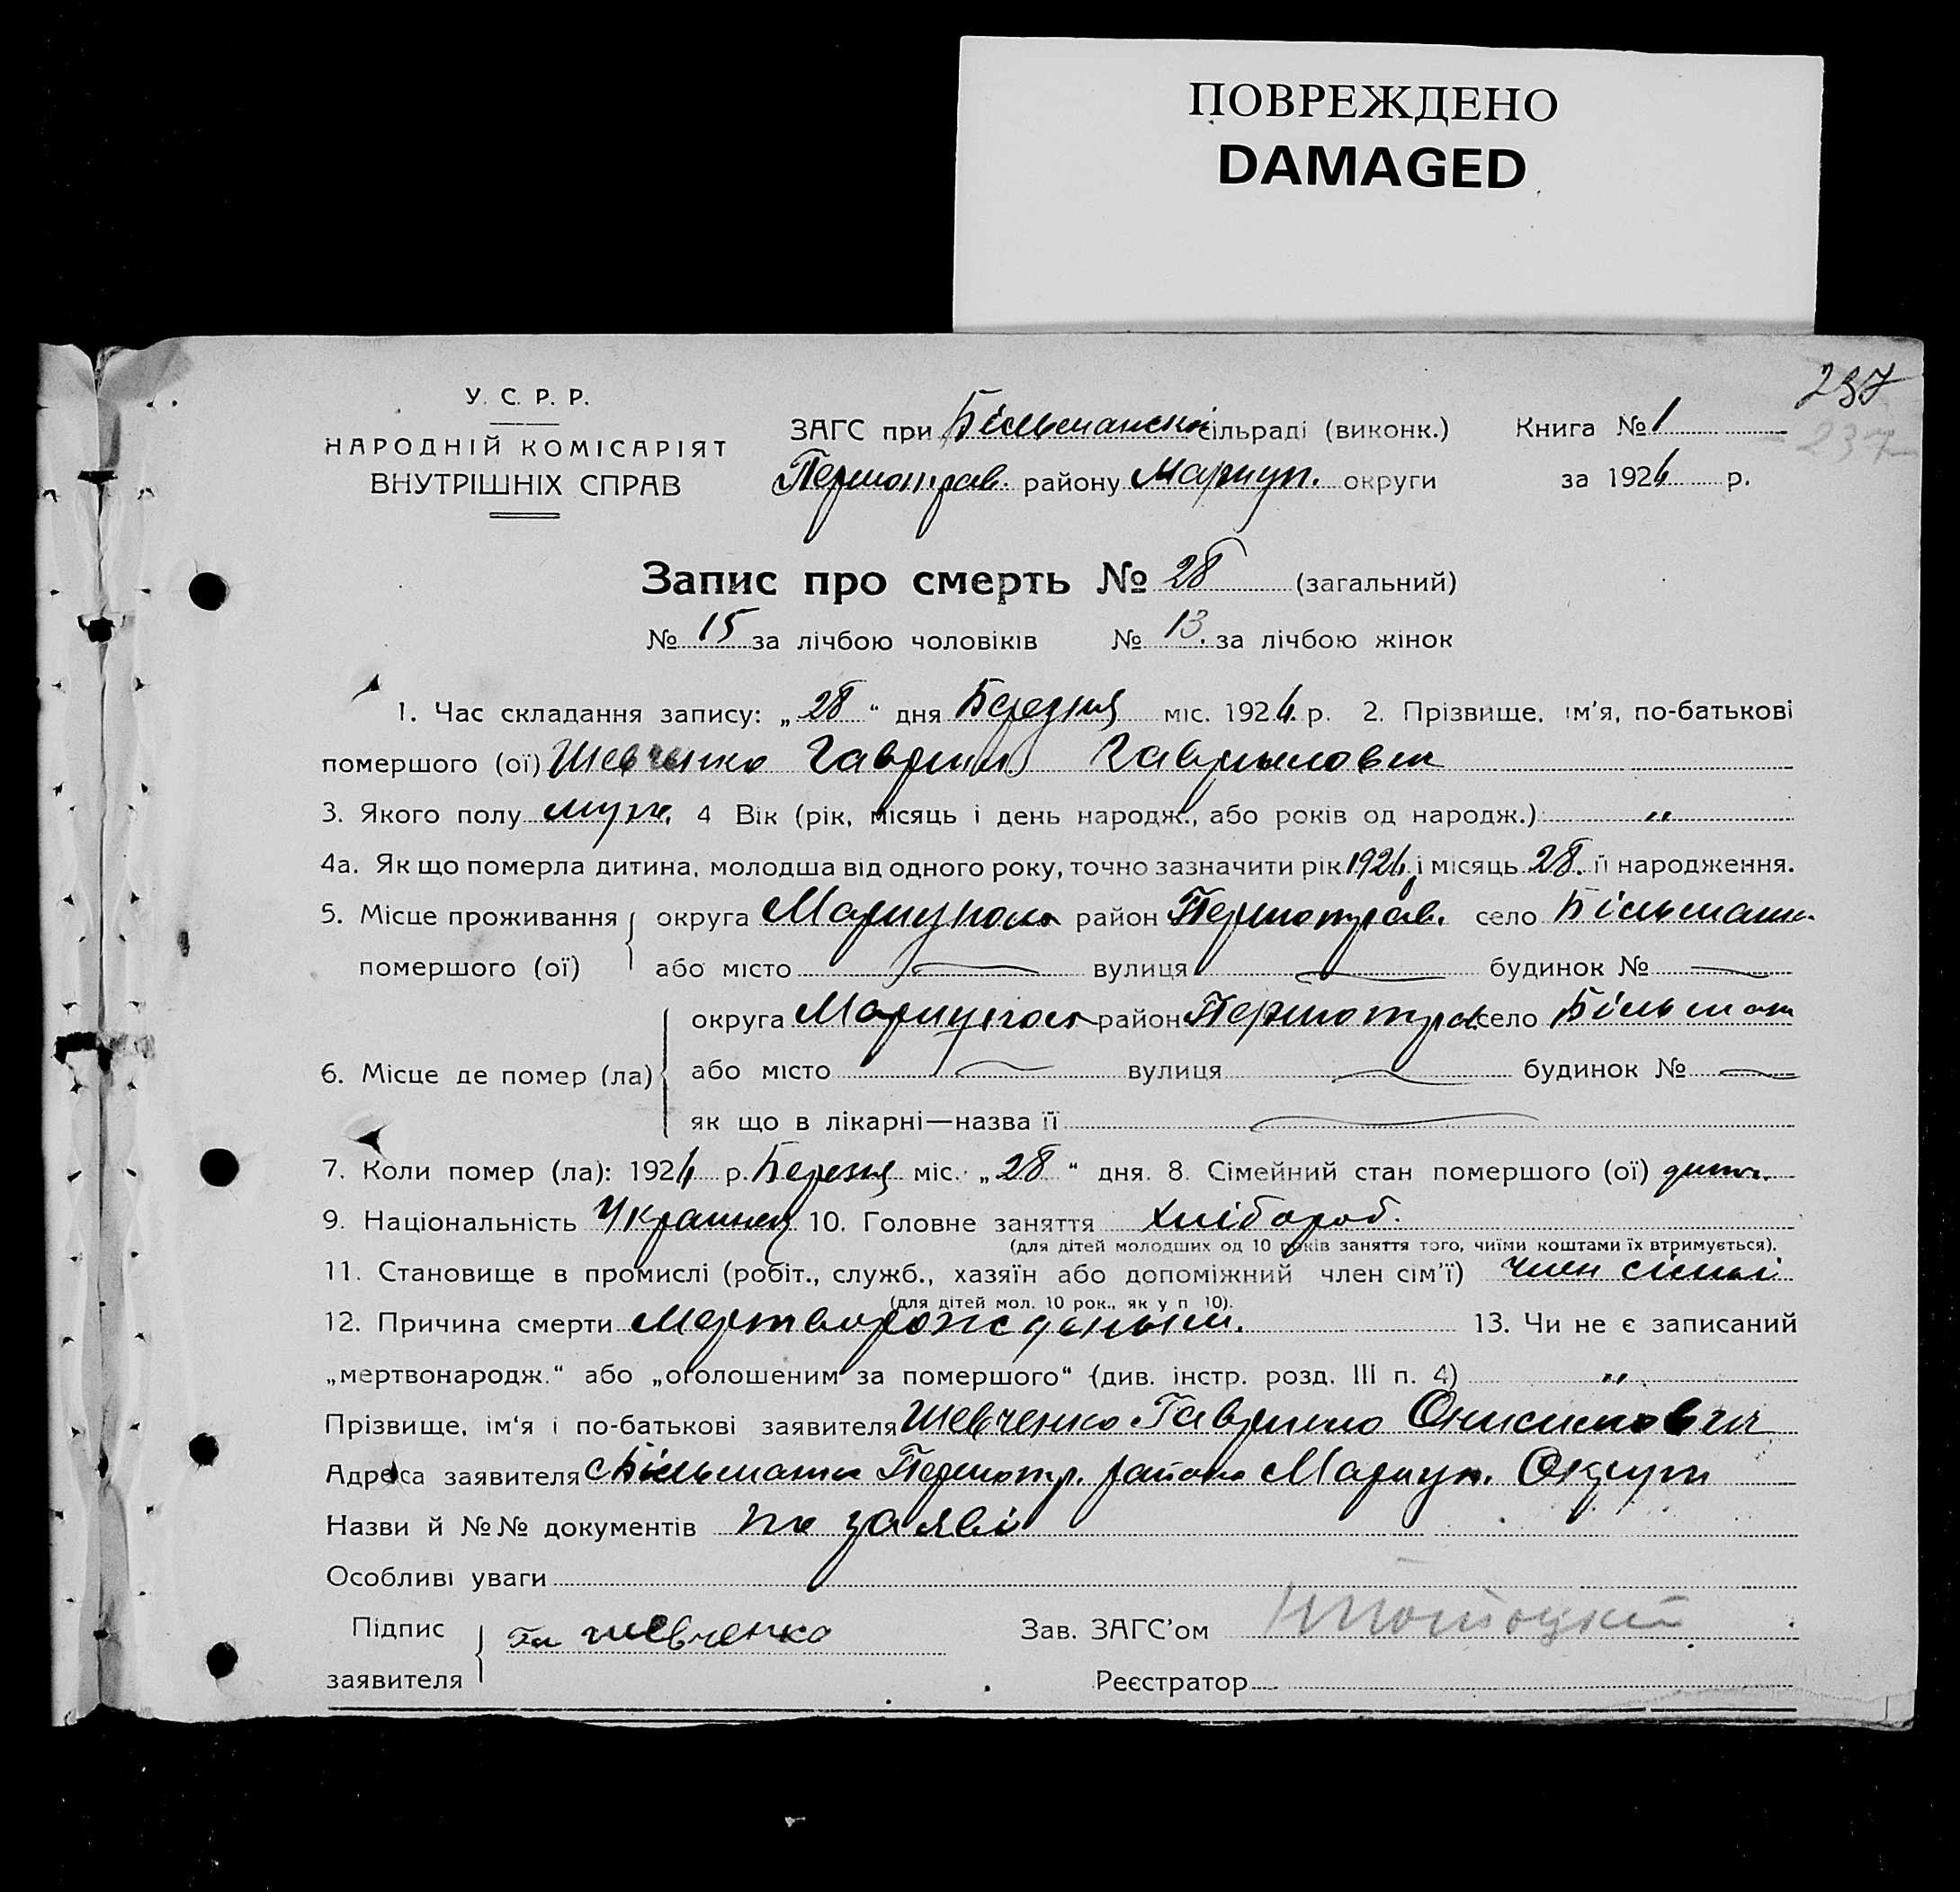 ПОВРЕЖДЕНО
DAMAGED
237
237
У. С. Р. Р.
НАРОДНІЙ КОМІСАРІЯТ
ВНУТРІШНІХ СПРАВ
ЗАГС при Більманскі сільраді (виконк.) Книга № 1
Першотрав. району Маріуп. округи за 1926 р.
Запис про смерть № 28 (загальний)
№ 15 за лічбою чоловіків № 13. за лічбою жінок
1. Час складання запису: „28“ дня Березня міс. 1926 р. 2. Прізвище, ім'я, по-батькові
помершого (ої) Шевченко Гаврил Гаврилович
3. Якого полу муж. 4 Вік (рік, місяць і день народж., або років од народж.) „
4а. Як що померла дитина, молодша від одного року, точно зазначити рік 1926 і місяць 28. її народження.
5. Місце проживання округа Маріуполь район Першотрав. село Більманка
помершого (ої) або місто вулиця будинок №
округа Маріуполь район Першотрав село Більман
6. Місце де помер (ла) або місто вулиця будинок №
як що в лікарні—назва її
7. Коли помер (ла): 1926 р. Березня міс. „28“ дня. 8. Сімейний стан помершого (ої) дитин.
9. Національність Украинец 10. Головне заняття Хлібороб.
(для дітей молодших од 10 років заняття того, чиїми коштами їх втримується).
11. Становище в промислі (робіт., служб., хазяїн або допоміжний член сім'ї) член сімьі
(для дітей мол. 10 рок., як у п 10).
12. Причина смерти Мертворожденный. 13. Чи не є записаний
„мертвонародж.“ або „оголошеним за помершого“ (див. інстр. розд. III п. 4) „
Прізвище, ім'я і по-батькові заявителя Шевченко Гаврило Онисимович
Адреса заявителя с Більманка Першотр. района Маріуп. Округи
Назви й №№ документів по заяві
Особливі уваги
Підпис Гв Шевченко Зав. ЗАГС'ом
заявителя Реєстратор